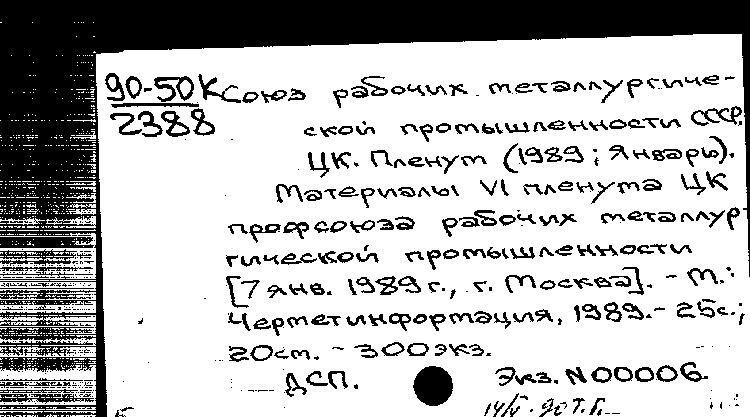 90-50К Союз рабочих металлургиче-
2388 ской промышленности СССР.
ЦК. Пленум (1989; Январь).
Материалы VI пленума ЦК
профсоюза рабочих металлур-
гической промышленности
[7 янв. 1989 г., г. Москва]. - М.:
Черметинформация, 1989. - 25с.;
20см. - 300экз.
ДСП. Экз. N00006.